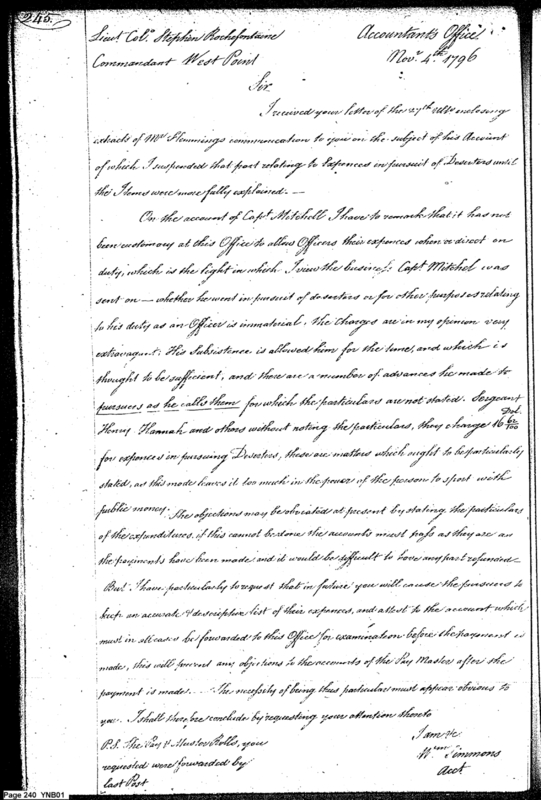 245.
Lieut Colo. Stephen Rochefontaine
Commandant West Point
Accountant's Office
Novr. 4th. 1796
Sir
I received your letter of the 27th Ulto. enclosing
extracts of Mr Flemmings communication to you on the subject of his Account
of which I suspended that part relating to Expences in pursuit of Deserters until
the Items were more fully explained. —
On the account of Capt. Mitchell I have to remark that it has not
been customary at this Office to allow Officers their expences when or direct on
duty, which is the light in which I view the business Capt. Mitchel was
sent on — whether he went in pursuit of deserters or for other purposes relating
to his duty as an Officer is immaterial, the charges are in my opinion very
extravagant. His Subsistence is allowed him for the time, and which is
thought to be sufficient, and there are a number of advances he made to
pursuers as he calls them for which the particulars are not stated. Sergeant
Henry Hannah and others without noting the particulars, they charge 16 Dol.
for expences in pursuing Deserters, these are matters which ought to be particularly
stated, as this mode leaves it too much in the power of the person to sport with
public money. The objections may be obviated at present by stating the particulars
of the expenditures, if this cannot be done the accounts must pass as they are as
the payments have been made and it would be difficult to have any part refunded —
But I have particularly to request that in future you will cause the pursuers to
keep an accurate & descriptive list of their expences, and attest to the account which
must in all cases be forwarded to this Office for examination before the payment is
made, this will prevent any objections to the accounts of the Pay Master after the
payment is made. — The necessity of being thus particular must appear obvious to
you. I shall therefore conclude by requesting your attention thereto
I am &c
Wm Simmons
Acct
P.S. The Pay & Muster Rolls, you
requested were forwarded by
last Post
Page 240 YNB01